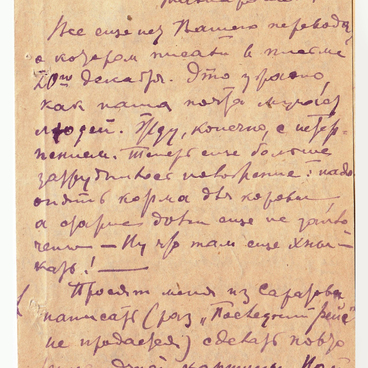 Все еще нет Вашего перевода,
о котором писали в письме
20го декабря. Это ужасно
как наша почта мучает
людей. Жду, конечно, с нетер-
пением. Теперь еще больше
: надо
опять корма для коровы
а старые долги еще не запла-
чены — Ну что там еще хны-
кать! —
Просят меня из Саратова
написать (раз „Последний рейс"
не продается) сделать повто-